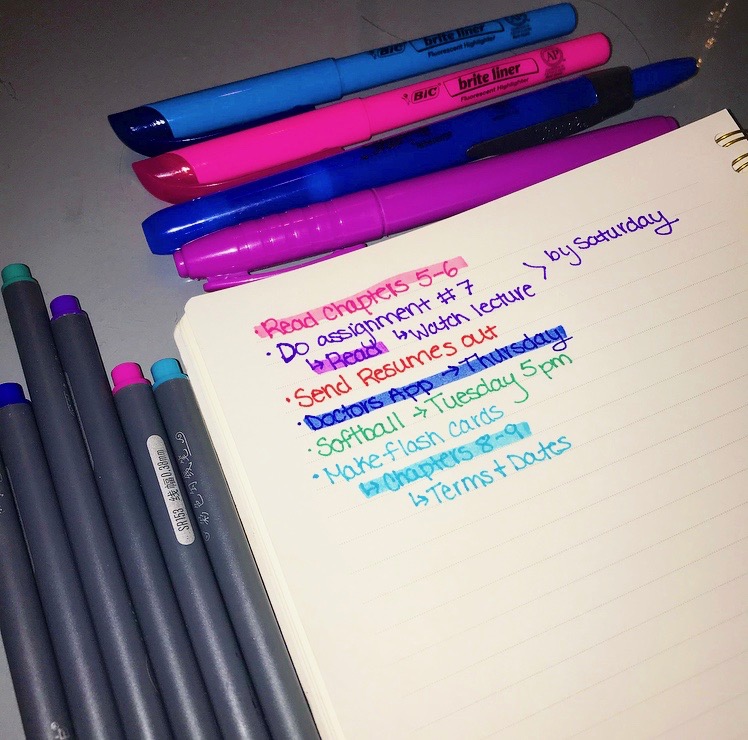 BIC brite liner
Fluorescent Highlighter
AP
BIC brite liner
Fluorescent Highlighter
AP
• Read Chapters 5-6
• Do assignment #7 > by Saturday
↳ Read ↳ Watch lecture
• Send Resumes out
• Doctors App → Thursday!
• Softball → Tuesday 5pm
• Make flash cards
↳ Chapters 8-9
↳ Terms + Dates
SR153 线幅0.38mm